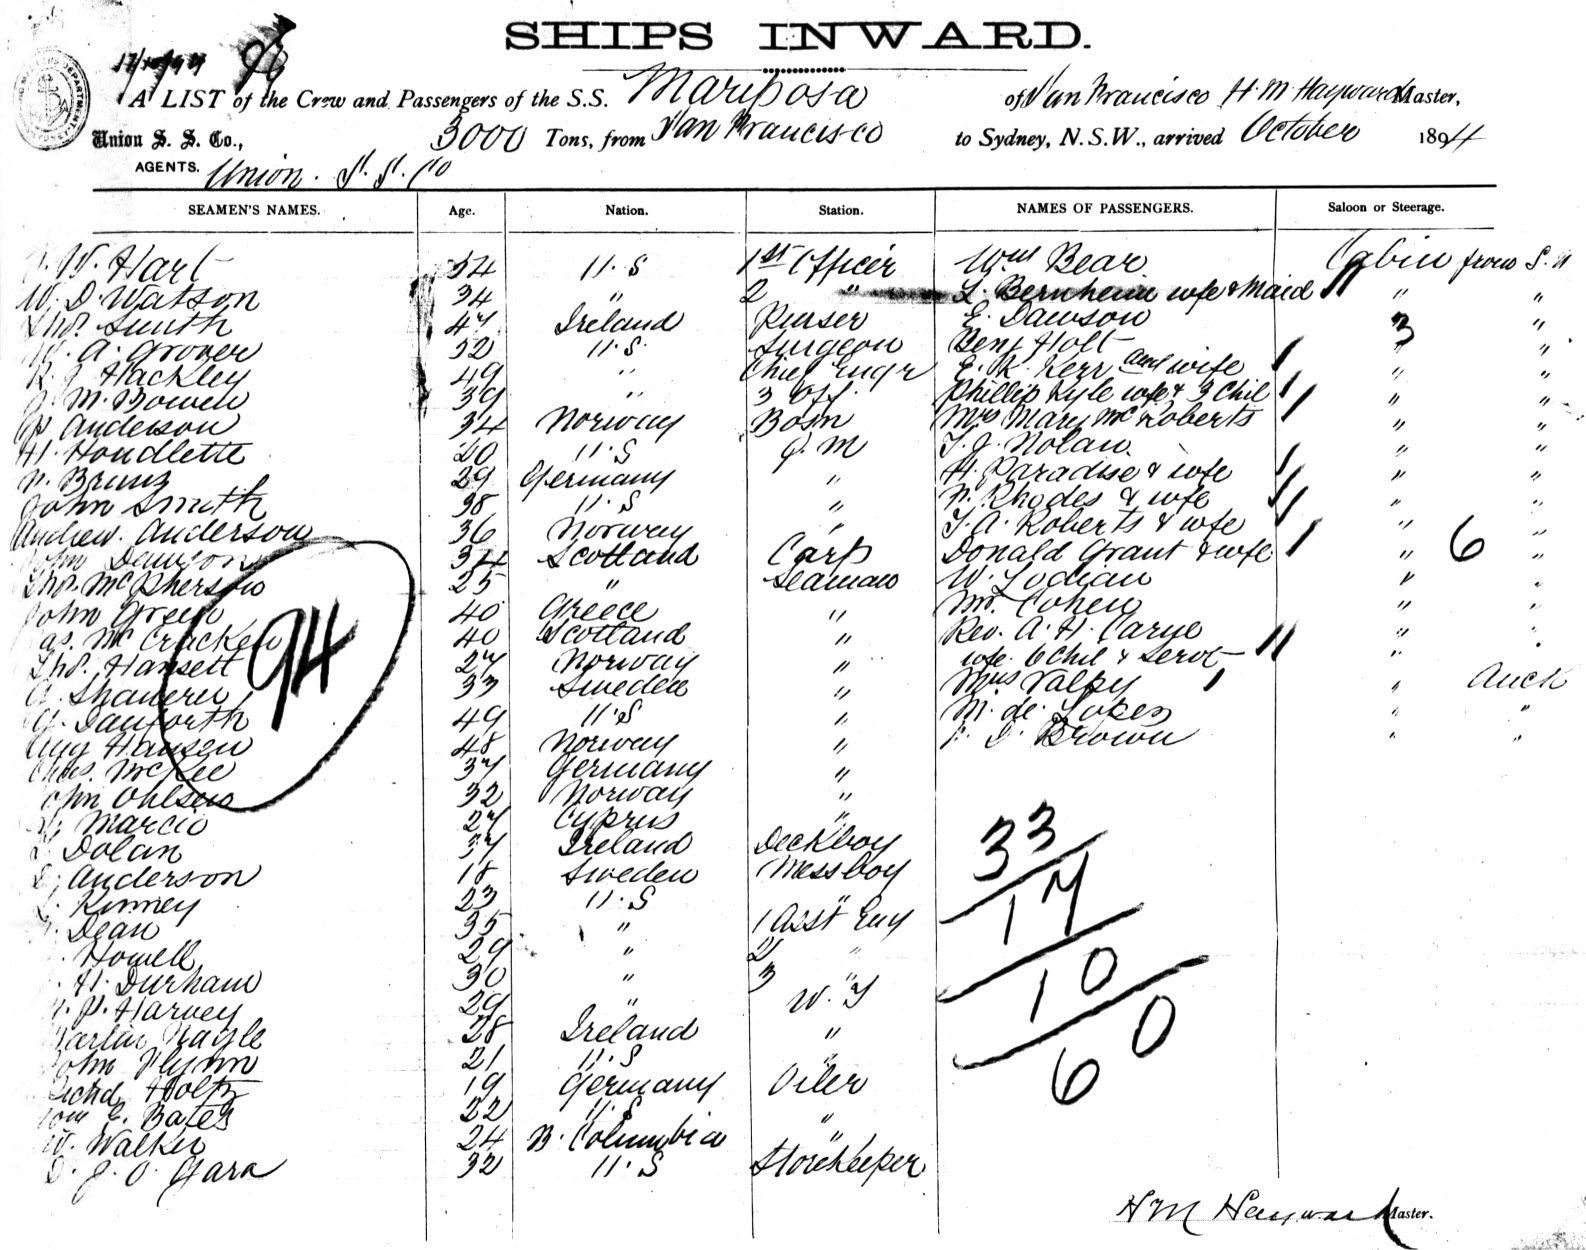 SHIPS INWARD.
A LIST of the Crew and Passengers of the S.S. Mariposa of San Francisco H. M Hayward Master,
Union S. S. Co., 3000 Tons, from San Francisco to Sydney, N.S.W., arrived October 1894
AGENTS. Union. S. S. Co
SEAMEN'S NAMES. Age. Nation. Station. NAMES OF PASSENGERS. Saloon or Steerage.
W. Hart 54 U. S 1st Officer Wm Bear Cabin from S.
W. D. Watson 34 " 2 " L. Bernheim wife & Maid " "
Thos. Smith 47 Ireland Purser E. Dawson 3 "
W. A. Grover 52 U. S. Surgeon Benj Holt " "
R. J. Hackley 49 " Chief Engr E. K. Kerr and wife " "
J. M. Bowen 39 " 3 Off. Phillip Kyle wife & 3 Chil " "
P. Anderson 34 Norway Bosn Mrs Mary McRoberts " "
H. Houdlette 20 U. S Q. M T. J. Nolan. " "
N. Bruns 29 Germany " H. Paradise & wife " "
John Smith 38 U. S " N. Rhodes & wife " "
Andrew. Anderson 36 Norway " T. A. Roberts & wife " "
John Dawson 34 Scotland Carp Donald Grant & wife " 6 "
Thos. McPherson 25 " Seaman W. Lodian " "
John Green 40 Greece " Mr. Cohen " "
Jas. McCracken 40 Scotland " Rev. A. H. Carye " "
Thos. Hansett 27 Norway " wife. 6 Chil & Servt " "
A. 33 Sweden " Valpy " Auck
G. Danforth 49 U. S " M. de. " "
Aug Hansen 48 Norway " D. Brown " "
Chas. McKee 37 Germany "
John Ohlsen 32 Norway "
94
Marcio 27 Cyprus "
Dolan 37 Ireland Deckboy
Anderson 18 Sweden Messboy
Kinney 23 U. S "
Dean 35 " 1 Asst Eng
Howell 29 " 2 "
H. Durham 30 " 3 "
P. Harvey 29 " W. T
Martin Nagle 28 Ireland "
John Flynn 21 U. S "
Richd Holtz 19 Germany Oiler
Wm E. Bates 22 U. S "
W. Walker 24 B. Columbia "
D. J. O. Gara 32 U. S Storekeeper
33
17
10
60
H M Hayward Master.